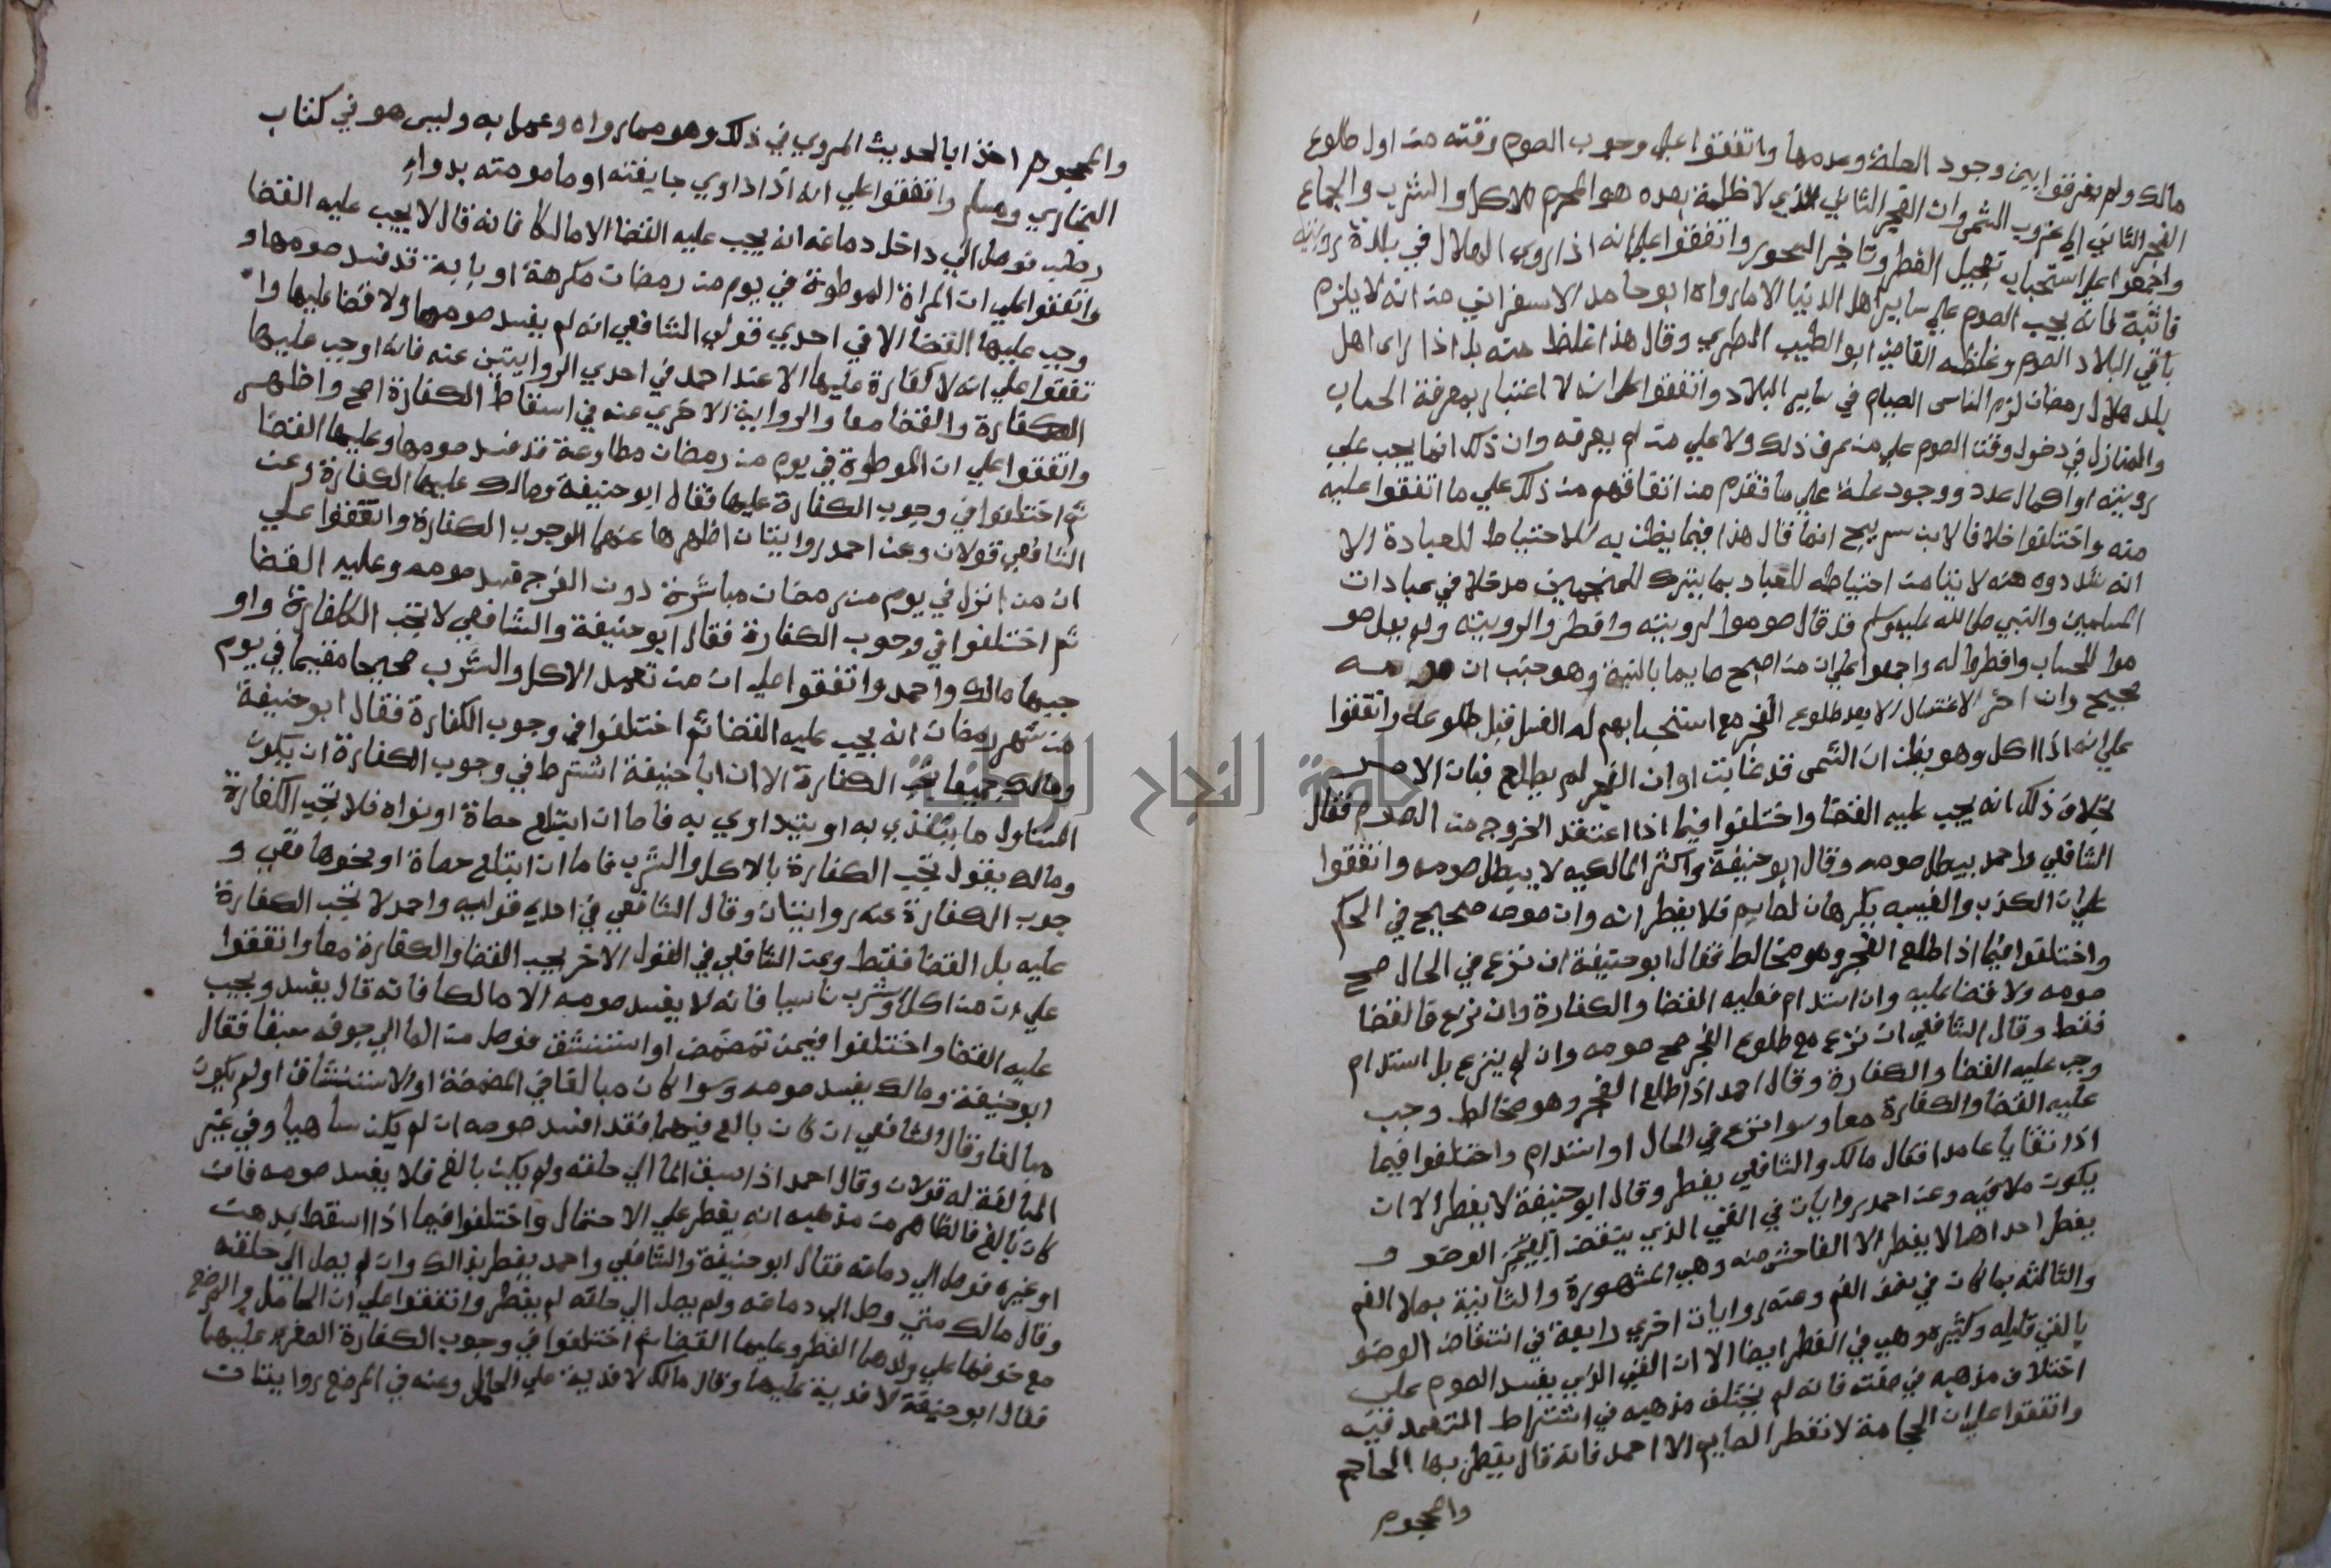 مالك ولم يفرقوا بين وجود العلة وعدمها واتفقوا علي وجوب الصوم وقته من اول طلوع
الفجر الثاني الي غروب الشمس وان الفجر الثاني الذي لا ظلمة بعده هو المحرم للاكل والشرب والجماع
واجمعوا علي استحباب تعجيل الفطر وتاخير السحور واتفقوا علي انه اذا روي الهلال في بلدة روية
فاشية فانه يجب الصوم علي ساير اهل الدنيا الا ما رواه ابو حامد الاسفرايني من انه لا يلزم
باقي البلاد الصوم وغلظه القاضي ابو الطيب الطبري وقال هذا غلط منه بل اذا راي اهل
بلد هلال رمضان لزم الناس الصيام في ساير البلاد واتفقوا علي انه لا اعتبار بمعرفة الحساب
والمنازل في دخول وقت الصوم علي من عرف ذلك ولا علي من لم يعرفه وان ذلك انما يجب علي
رويته او اكمال عدد ووجود علة علي ما تقدم من اتفاقهم من ذلك علي ما اتفقوا عليه
منه واختلفوا خلافا لابن سريج انما قال هذا فيما يظن به للاحتياط للعبادة الا
انه شدوه منه لاننا من احتياطه للعباد بما يترك للمنجمين مدخلا في عبادات
المسلمين والنبي صلي الله عليه وسلم قد قال صوموا لرويته وافطروا لرويته ولم يقل صو
موا للحساب وافطروا له واجمعوا علي ان من اصبح صايما بالنية وهو جنب ان صومه
صحيح وان اخر الاغتسال الا بعد طلوع الفجر مع استحبابهم له الغسل قبل طلوعه واتفقوا
علي انه اذا اكل وهو يظن ان الشمس قد غابت او ان الفجر لم يطلع فبان الامر
بخلاف ذلك انه يجب عليه القضا واختلفوا فيما اذا اعتقد الخروج من الصوم فقال
الشافعي واحمد يبطل صومه وقال ابو حنيفة واكثر المالكيه لا يبطل صومه واتفقوا
علي ان الكذب والغيبه يكرهان لصايم فلا يفطرانه وان صومه صحيح في الحكم
واختلفوا فيما اذا طلع الفجر وهو مخالط فقال ابو حنيفة ان نزع في الحال صح
صومه ولا قضا عليه وان استدام فعليه القضا والكفارة وان نزع فالقضا
فقط وقال الشافعي ان نزع مع طلوع الفجر صح صومه وان لم ينزع بل استدام
وجب عليه القضا والكفارة وقال احمد اذا طلع الفجر وهو مخالط وجب
عليه القضا والكفارة معا وسوا نزع في الحال او استدام واختلفوا فيما
اذا تقايا عامدا فقال مالك والشافعي يفطر وقال ابو حنيفة لا يفطر الا ان
يكون ملا فيه وعن احمد روايات في القي الذي ينقض الوضو و
يفطر احداها لا يفطر الا الفاحش منه وهي المشهورة والثانية بملا الفم
والثالثه بما كان في نصف الفم وعنه روايات اخري رابعة في انتقاض الوضو
بالقي قليله وكثيره وهي في الفطر ايضا الا ان القي الذي يفسد الصوم علي
اختلاف مذهبه في صفته فانه لم يختلف مذهبه في اشتراط التعمد فيه
واتفقوا علي ان الحجامة لا تفطر الصايم الا احمد فانه قال يفطر بها الحاجم
والمحجوم
والمحجوم اخذا بالحديث المروي في ذلك وهو مما رواه وعمل به وليس هو في كتاب
البخاري ومسلم واتفقوا علي انه اذا داوي جايفته او مامومته بدواء
رطب فوصل الي داخل دماغه انه يجب عليه القضا الا مالكا فانه قال لا يجب عليه القضا
واتفقوا علي ان المراة الموطوة في يوم من رمضان مكرهة او نايمة قد فسد صومها و
وجب عليها القضا الا في احدي قولي الشافعي انه لم يفسد صومها ولا قضا عليها وا
تفقوا علي انه لا كفارة عليها الا عند احمد في احدي الروايتين عنه فانه اوجب عليها
الكفارة والقضا معا والرواية الاخري عنه في اسقاط الكفارة اصح واظهر
واتفقوا علي ان الموطوة في يوم من رمضان مطاوعة قد فسد صومها وعليها القضا
ثم اختلفوا في وجوب الكفارة عليها فقال ابو حنيفة ومالك عليها الكفارة وعن
الشافعي قولان وعن احمد روايتان اظهرها عنهما الوجوب الكفارة واتفقوا علي
ان من انزل في يوم من رمضان مباشرة دون الفرج فسد صومه وعليه القضا
ثم اختلفوا في وجوب الكفارة فقال ابو حنيفة والشافعي لا تجب الكفارة واو
جبها مالك واحمد واتفقوا علي ان من تعمد الاكل والشرب صحيحا مقيما في يوم
من شهر رمضان انه يجب عليه القضا ثم اختلفوا في وجوب الكفارة فقال ابو حنيفة
ومالك جميعا تجب الكفارة الا ان ابا حنيفة اشترط في وجوب الكفارة ان يكون
المتناول ما يتغذي به او يتداوي به فاما ان ابتلع حصاة او نواه فلا تجب الكفارة
ومالك يقول تجب الكفارة بالاكل والشرب فاما ان ابتلع حصاة او نحوها ففي و
جوب الكفارة عنه روايتان وقال الشافعي في احدي قوليه واحمد لا تجب الكفارة
عليه بل القضا فقط وعن الشافعي في القول الاخر يجب القضا والكفارة معا واتفقوا
علي ان من اكل وشرب ناسيا فانه لا يفسد صومه الا مالكا فانه قال يفسد ويجب
عليه القضا واختلفوا فيمن تمضمض او استنشق فوصل من الما الي جوفه سبقا فقال
ابو حنيفة ومالك يفسد صومه وسوا كان مبالغا في المضمضة او الاستنشاق او لم يكون
مبالغا وقال الشافعي ان كان بالغ فيهما فقد افسد صومه ان لم يكن ساهيا وفي غير
المبالغة له قولان وقال احمد اذا سبق الما الي حلقه ولم يكن بالغ فلا يفسد صومه فان
كان بالغ فالظاهر من مذهبه انه يفطر علي الاحتمال واختلفوا فيما اذا اسقط بدهن
او غيره فوصل الي دماغه فقال ابو حنيفة والشافعي واحمد يفطر بذالك وان لم يصل الي حلقه
وقال مالك متي وصل الي دماغه ولم يصل الي حلقه لم يفطر واتفقوا علي ان الحامل والمرضع
مع خوفهما علي ولدهما الفطر وعليهما القضا ثم اختلفوا في وجوب الكفارة الصغري عليهما
فقال ابو حنيفة لا فدية عليهما وقال مالك لا فدية علي الحامل وعنه في المرضع روايتان
جامعة النجاح الوطنية